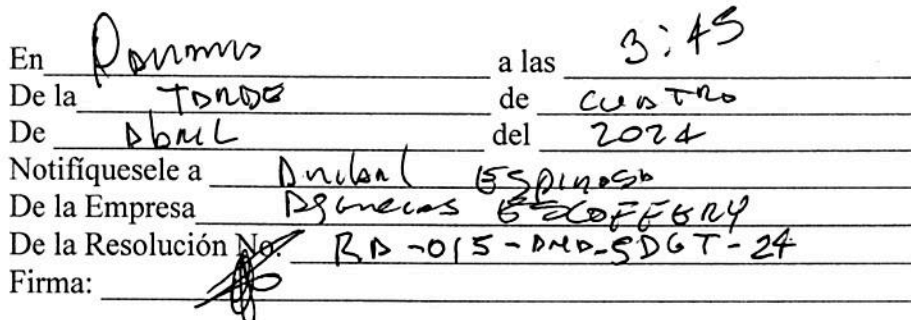 En Panamá a las 3:45
De la TARDE de CUATRO
De Abril del 2024
Notifíquesele a Anibal Espinosa
De la Empresa Agencias ESCOFFERY
De la Resolución No. RA-015-AMA-SDGT-24
Firma: